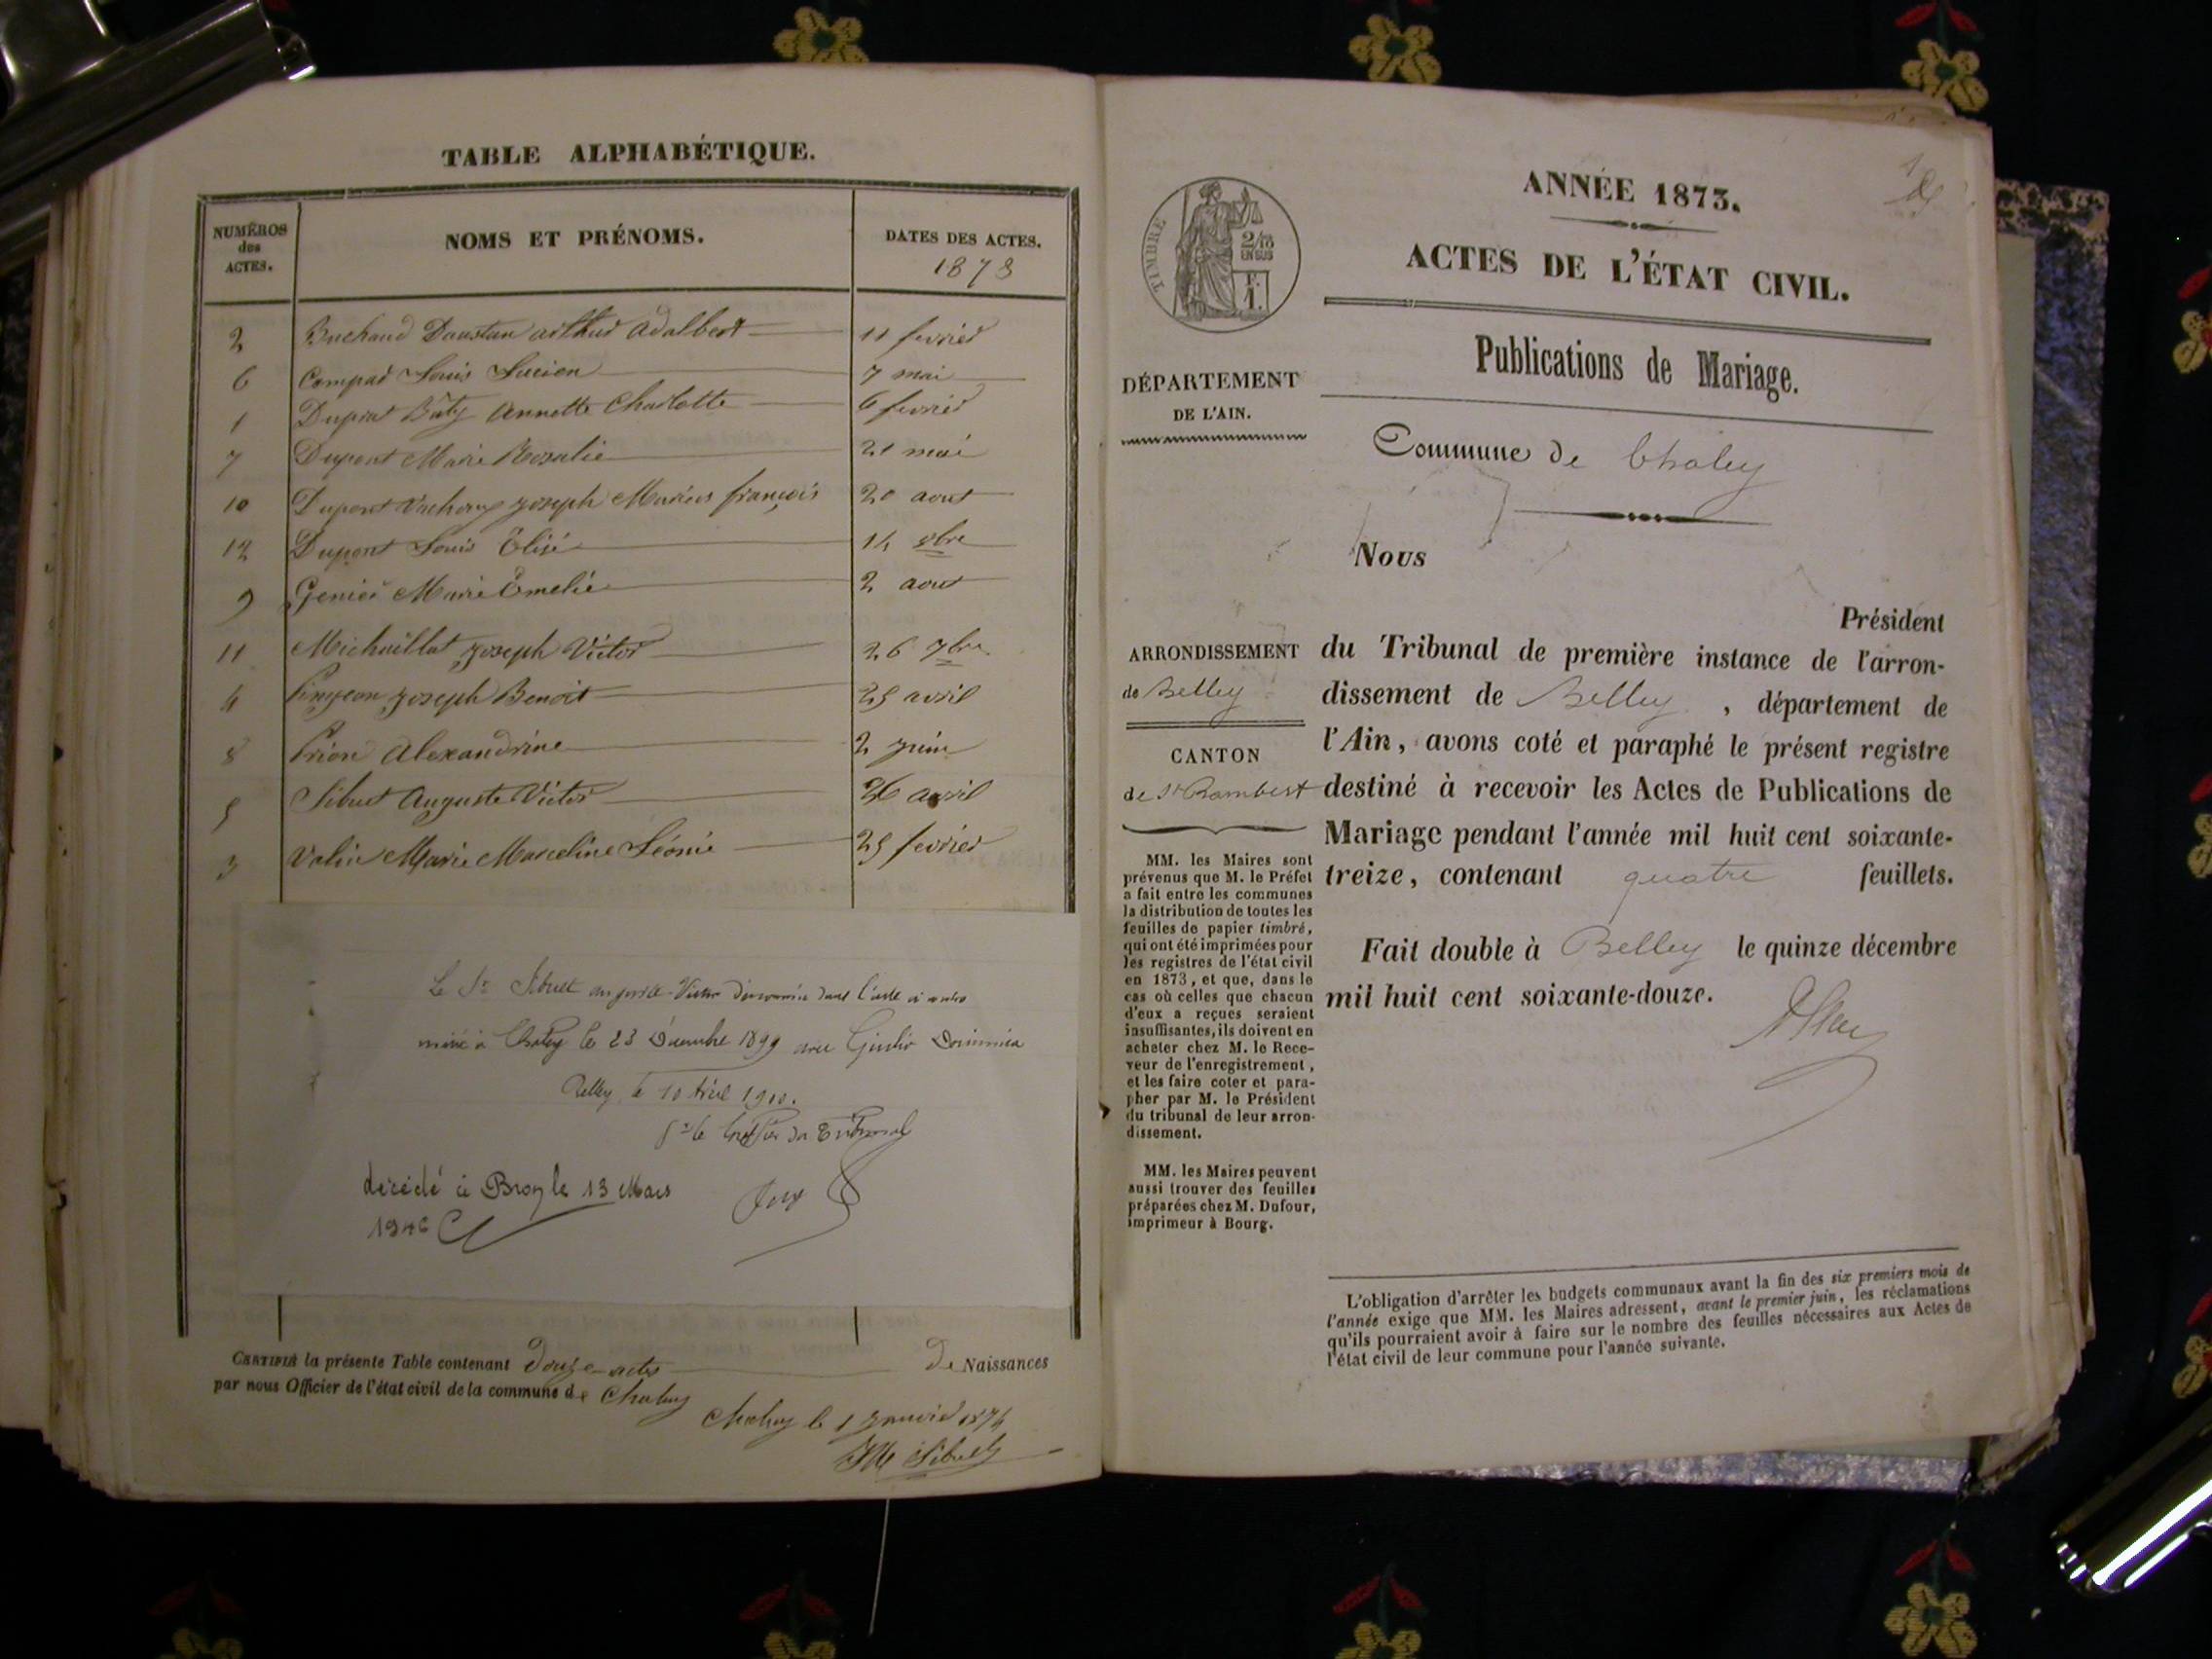 TABLE ALPHABÉTIQUE.
NUMÉROS
des
ACTES.
NOMS ET PRÉNOMS.
DATES DES ACTES.
1873
2 Buchaud Daustan arthur adalbert 11 fevrier
6 Compad Louis Lucien 7 mai
1 Duprat Buty Annette Charlotte 6 fevrier
7 Dupont Marie Rosalie 21 mai
10 Dupont Vachon joseph Marius françois 20 aout
12 Dupont Louis Élisé 14 8bre
9 Genier Marie Emelie 2 aout
11 Michaillat joseph Victor 26 7bre
4 Pingeon joseph Benoit 25 avril
8 Prior Alexandrine 2 juin
5 Sibuet Auguste Victor 26 avril
3 Valin Marie Marceline Léonie 25 fevrier
Le Sr Sibuet auguste Victor dénommé dans l'acte ci contre
marié à Chaley le 23 Décembre 1899 avec
Belley, le 10 Avril 1900.
Pr le Greffier du Tribunal
décédé à Bron le 13 Mars
1946
CERTIFIÉ la présente Table contenant douze actes de Naissances
par nous Officier de l'état civil de la commune de Chaley
Chaley le 1 janvier 1874
Sibuet
ANNÉE 1873.
ACTES DE L'ÉTAT CIVIL.
TIMBRE
2/10
EN SUS
F.
1.
Publications de Mariage.
DÉPARTEMENT
DE L'AIN.
Commune de Chaley
Nous
Président
ARRONDISSEMENT
de Belley
CANTON
de St Rambert
du Tribunal de première instance de l'arron-
dissement de Belley, département de
l'Ain, avons coté et paraphé le présent registre
destiné à recevoir les Actes de Publications de
Mariage pendant l'année mil huit cent soixante-
treize, contenant quatre feuillets.
Fait double à Belley le quinze décembre
mil huit cent soixante-douze.
MM. les Maires sont
prévenus que M. le Préfet
a fait entre les communes
la distribution de toutes les
feuilles de papier timbré,
qui ont été imprimées pour
les registres de l'état civil
en 1873, et que, dans le
cas où celles que chacun
d'eux a reçues seraient
insuffisantes, ils doivent en
acheter chez M. le Rece-
veur de l'enregistrement,
et les faire coter et para-
pher par M. le Président
du tribunal de leur arron-
dissement.
MM. les Maires peuvent
aussi trouver des feuilles
préparées chez M. Dufour,
imprimeur à Bourg.
L'obligation d'arrêter les budgets communaux avant la fin des six premiers mois de
l'année exige que MM. les Maires adressent, avant le premier juin, les réclamations
qu'ils pourraient avoir à faire sur le nombre des feuilles nécessaires aux Actes de
l'état civil de leur commune pour l'année suivante.